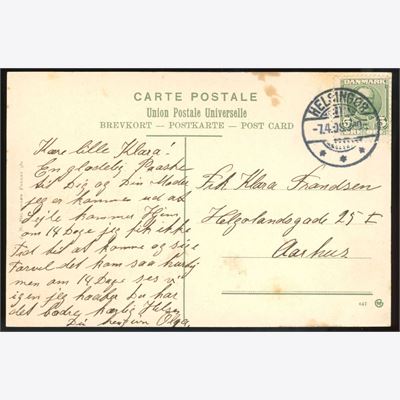 CARTE POSTALE
Union Postale Universelle
BREVKORT – POSTKARTE – POST CARD
DANMARK
HELSINGØR
-7.4.09.
Kære lille Klara!
En glædelig Paaske
til Dig og Din Moder
jeg er kommen ud at
Sejle kommer Hjem
om 14 Dage jeg fik ikke
Tid til at komme og sige
Farvel det kom saa hurtig
men om 14 Dage ses vi
igen jeg haaber Du har
det bedre kærlig Hilsen
Din Olga.
Frk Klara Frandsen
Helgolandsgade 25 I
Aarhus
647